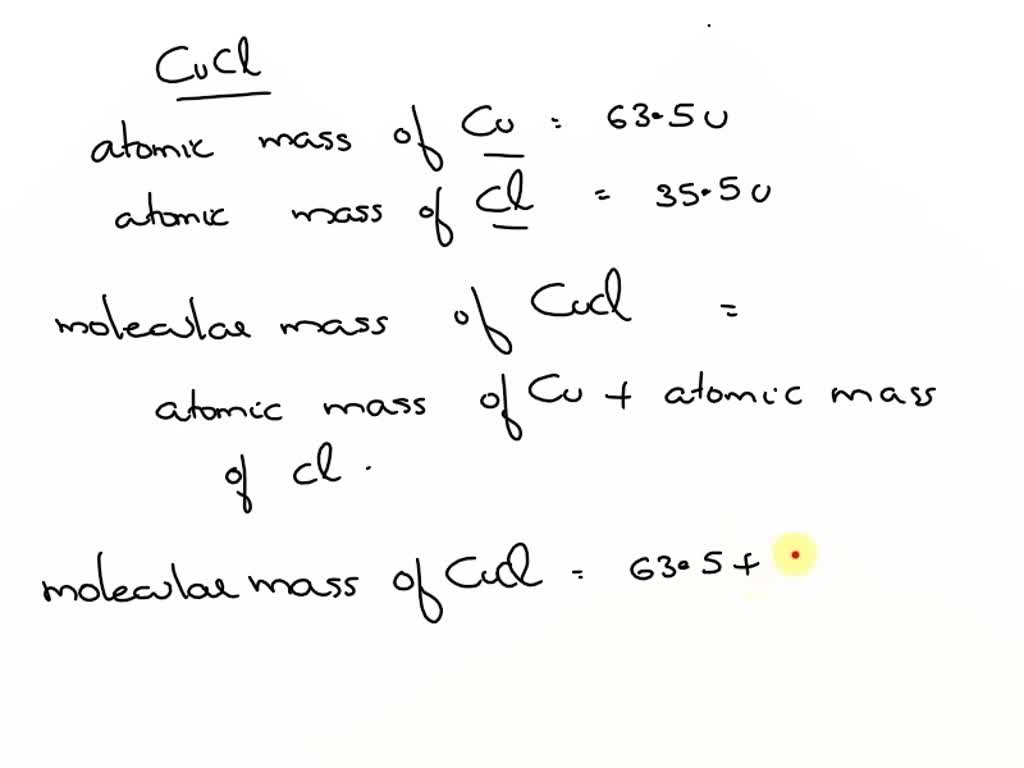 CuCl
atomic mass of Cu = 63.5u
atomic mass of Cl = 35.5u
molecular mass of CuCl =
atomic mass of Cu + atomic mass
of cl.
molecular mass of CuCl = 63.5 +